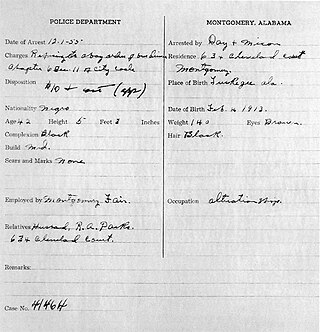 POLICE DEPARTMENT
Date of Arrest 12-1-55
Charges Refusing to obey orders of bus driver
Chapter 6 Sec. 11 of City Code
Disposition $10 & cost (app)
Nationality Negro
Age 42 Height 5 Feet 3 Inches
Complexion Black
Build Med.
Scars and Marks None
Employed by Montgomery Fair.
Relatives Husband, R.A. Parks.
634 Cleveland Court.
Remarks:
Case No. 41464
MONTGOMERY, ALABAMA
Arrested by Day & Mixon
Residence 634 Cleveland Court
Montgomery
Place of Birth Tuskegee ala
Date of Birth Feb. 4 1913.
Weight 140 Eyes Brown
Hair Black.
Occupation